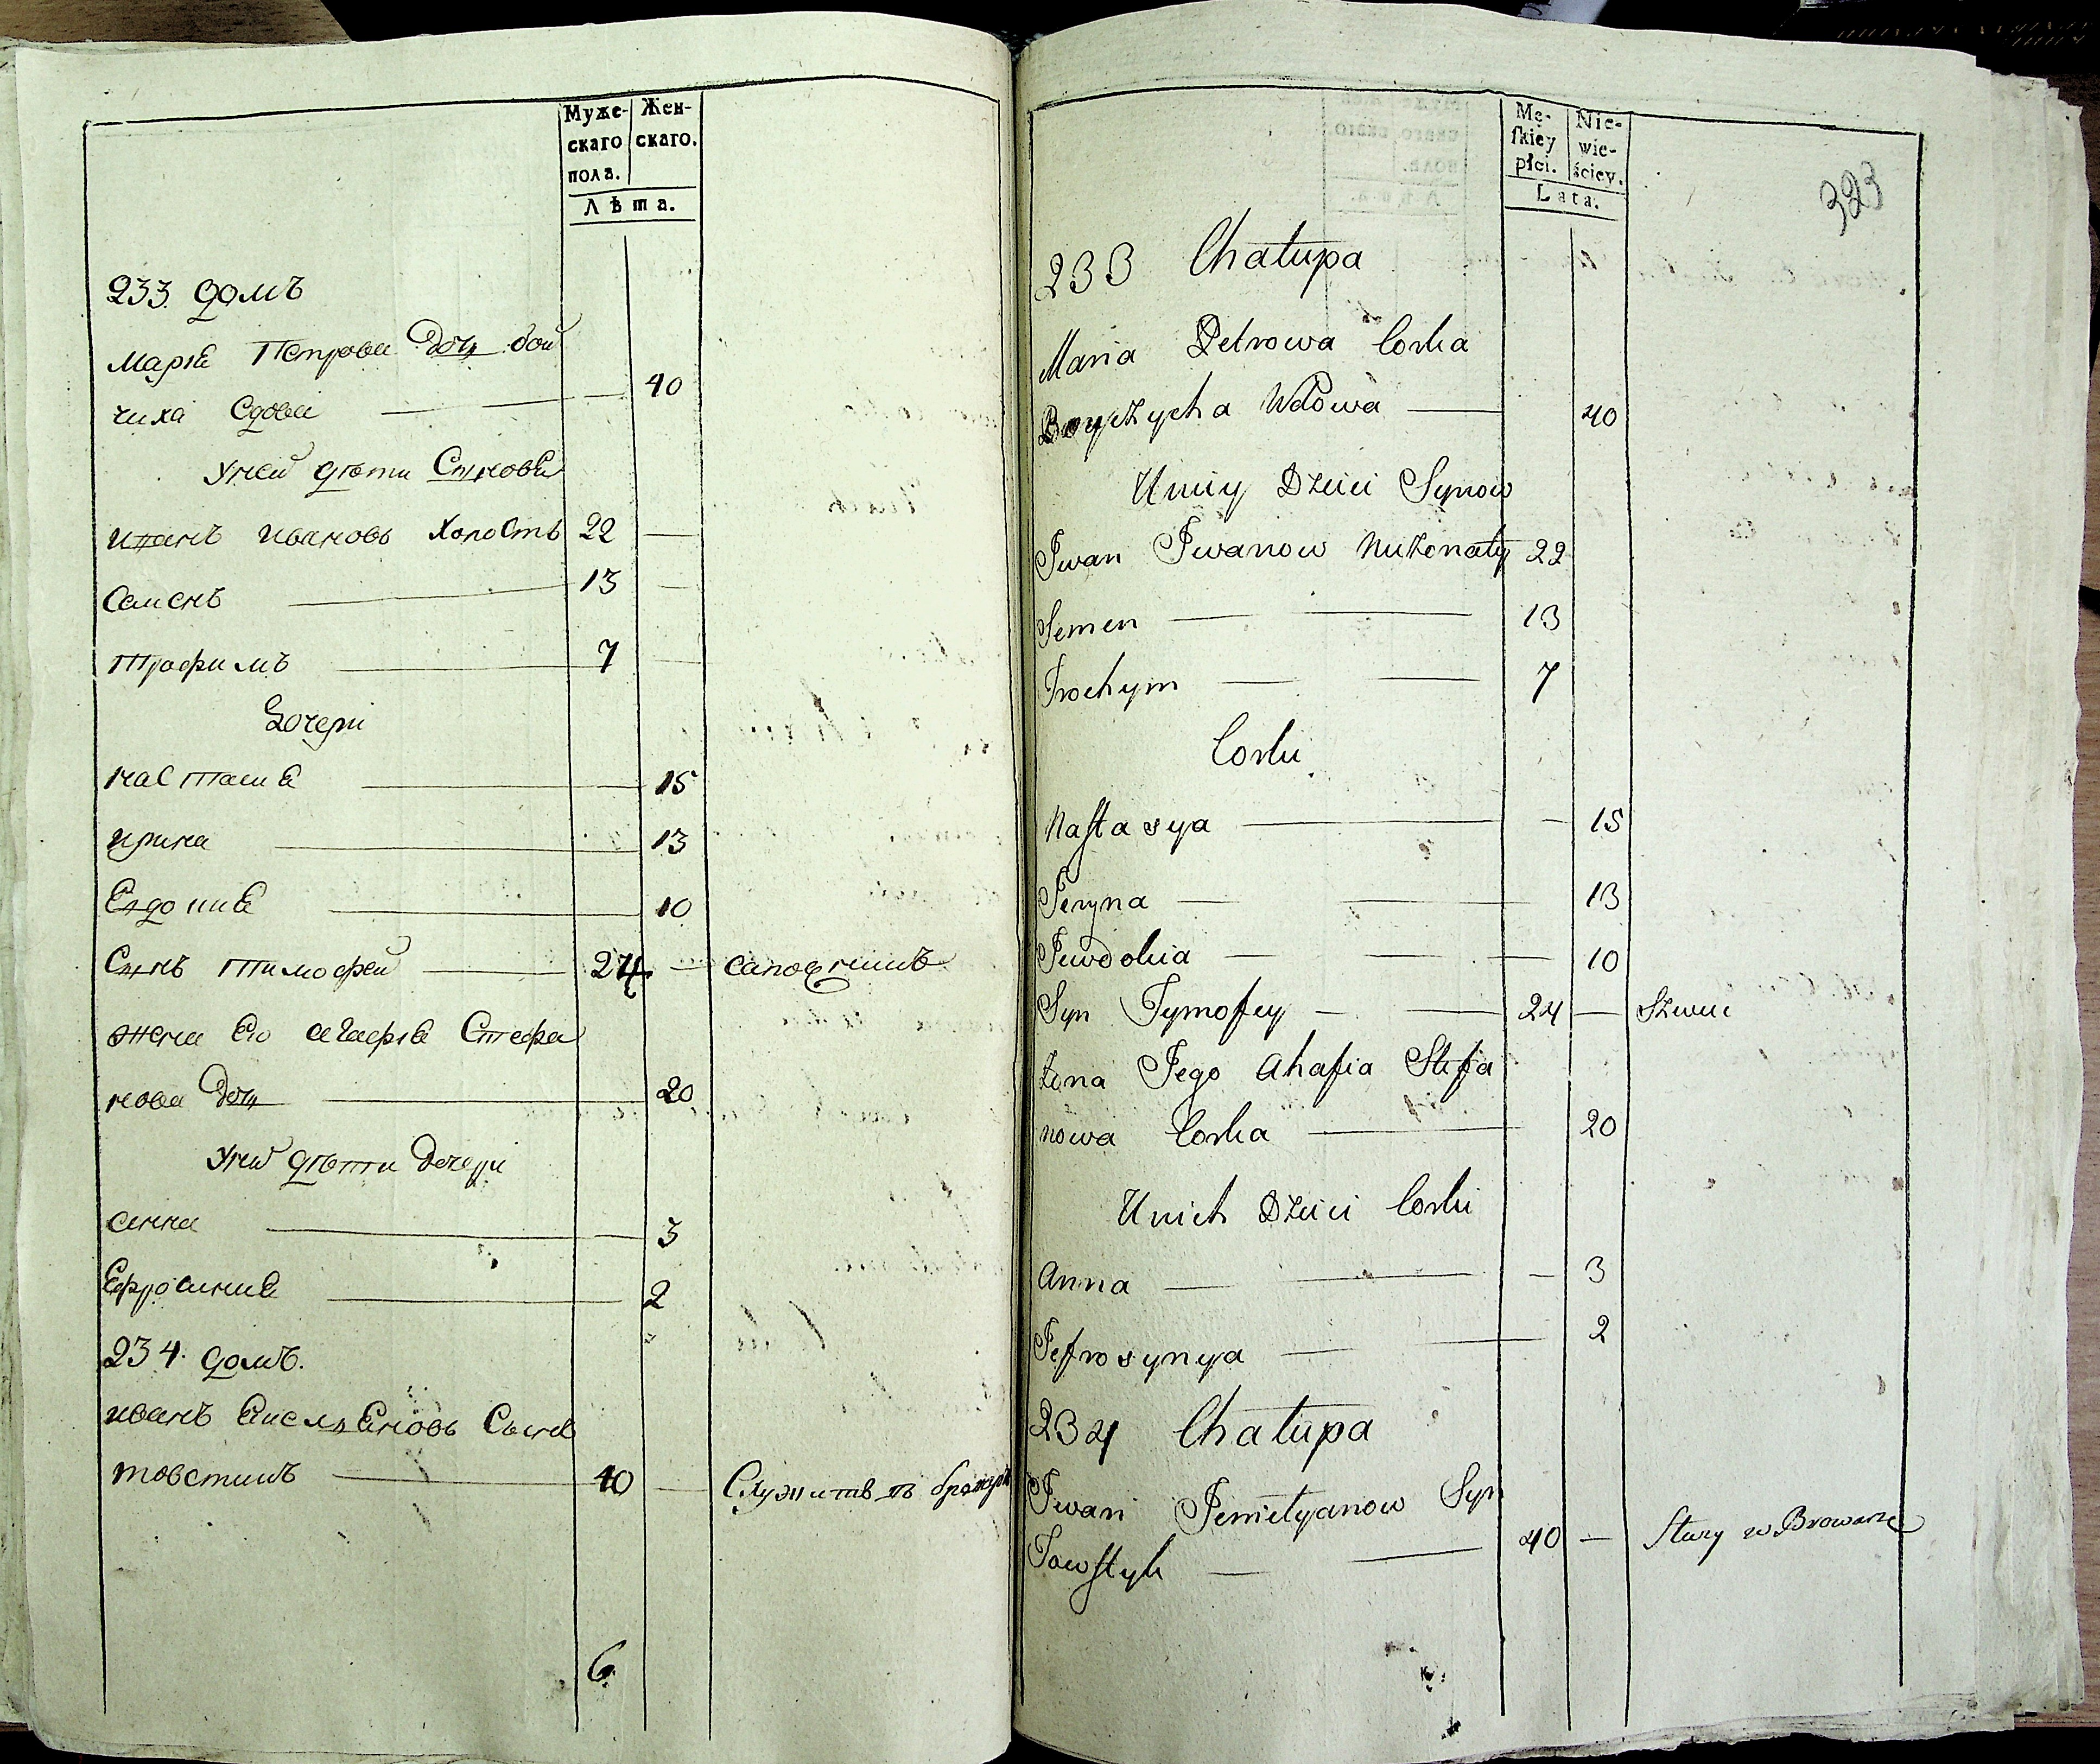 Муже-
скаго
пола.
Жен-
скаго.
Лѣта.
233 домъ
Маріа Петрова дочь бой
чиха вдова 40
У ней дѣти Сынови
иванъ ивановъ холостъ 22
Семенъ 13
Трофимъ 7
Дочери
настасиа 15
ирина 13
Евдокиа 10
Сынъ Тимофей 24 сапожникъ
жена Его агафіа Стефа
нова дочь 20
У ней дѣти дочери
анна 3
Ефросиниа 2
234 домъ.
иванъ Емельяновъ Сынъ
товстикъ 40 Служитъ в
6
Mę-
ſkiey
płci.
Nie-
wie-
ściey.
Lata.
323
233 Chałupa
Maria Petrowa Corka
Boyczycha Wdowa 40
U niey Dzieci Synow
Iwan Iwanow Niezonaty 22
Semen 13
Trochym 7
Corki
Naſtasya 15
Jeryna 13
Jewdokia 10
Syn Tymofey 24 Szewc
Zona Jego Ahafia Stefa
nowa Corka 20
U nich Dzieci Corki
Anna 3
Jefrosynya 2
234 Chałupa
Iwan Jemelyanow Syn
Towſtyk 40 Służy w Browarze